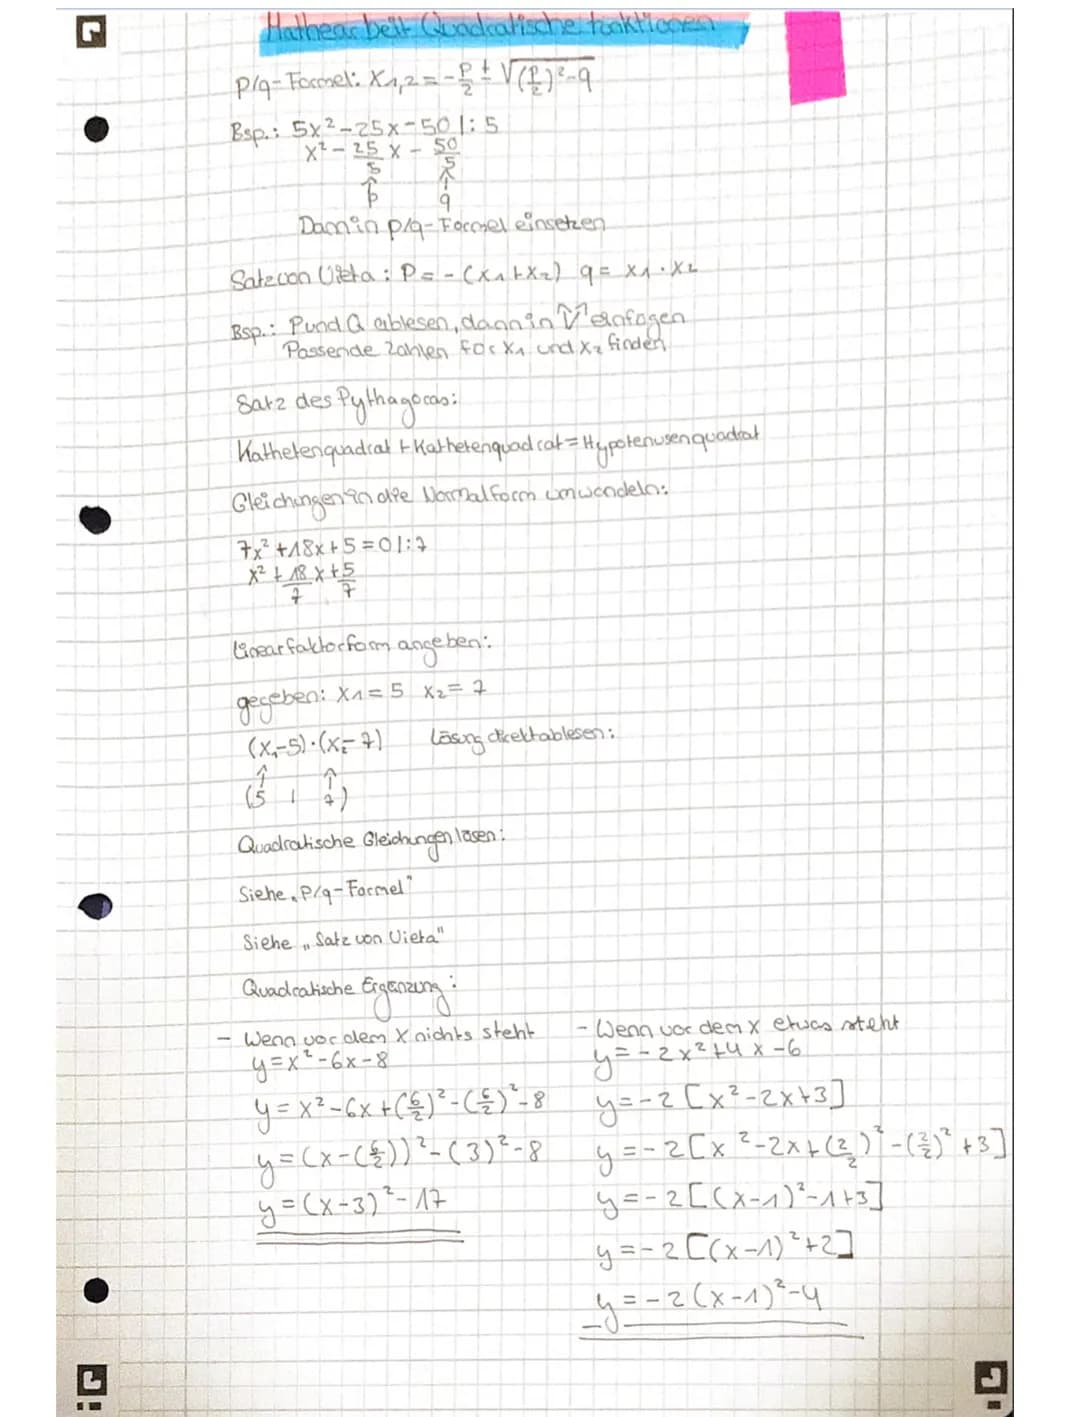 Mathearbeit Quadratische Funktionen
P/q-Formel: X1,2 = -P/2 ± √(P/2)²-q
Bsp.: 5x²-25x-50 |:5
x² - 25/5 x - 50/5
↑ ↑
p q
Dann in p/q-Formel einsetzen
Satz von Vieta: P = -(x1+x2) q = x1·x2
Bsp.: P und Q ablesen, dann in V einfügen
Passende Zahlen für x1 und x2 finden
Satz des Pythagoras:
Kathetenquadrat + Kathetenquadrat = Hypotenusenquadrat
Gleichungen in die Normalform umwandeln:
7x²+18x+5=0 |:7
x² + 18/7 x + 5/7
Linearfaktorform angeben:
gegeben: x1=5 x2=7
(x1-5)·(x2-7) Lösung direkt ablesen:
↑ ↑
(5 | 7)
Quadratische Gleichungen lösen:
Siehe „P/q-Formel"
Siehe „Satz von Vieta"
Quadratische Ergänzung:
- Wenn vor dem X nichts steht
y=x²-6x-8
y=x²-6x+(6/2)²-(6/2)²-8
y=(x-(6/2))²-(3)²-8
y=(x-3)²-17
- Wenn vor dem X etwas steht
y=-2x²+4x-6
y=-2[x²-2x+3]
y=-2[x²-2x+(2/2)²-(2/2)²+3]
y=-2[(x-1)²-1+3]
y=-2[(x-1)²+2]
y=-2(x-1)²-4